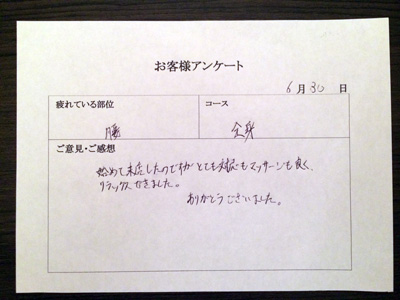 お客様アンケート
6月30日
疲れている部位
コース
腰
全身
ご意見・ご感想
始めて来店したのですがとても対応もマッサージも良く、
リラックスできました。
ありがとうございました。